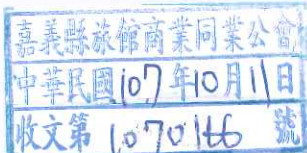 嘉義縣旅館商業同業公會
中華民國107年10月11日
收文第1070166號